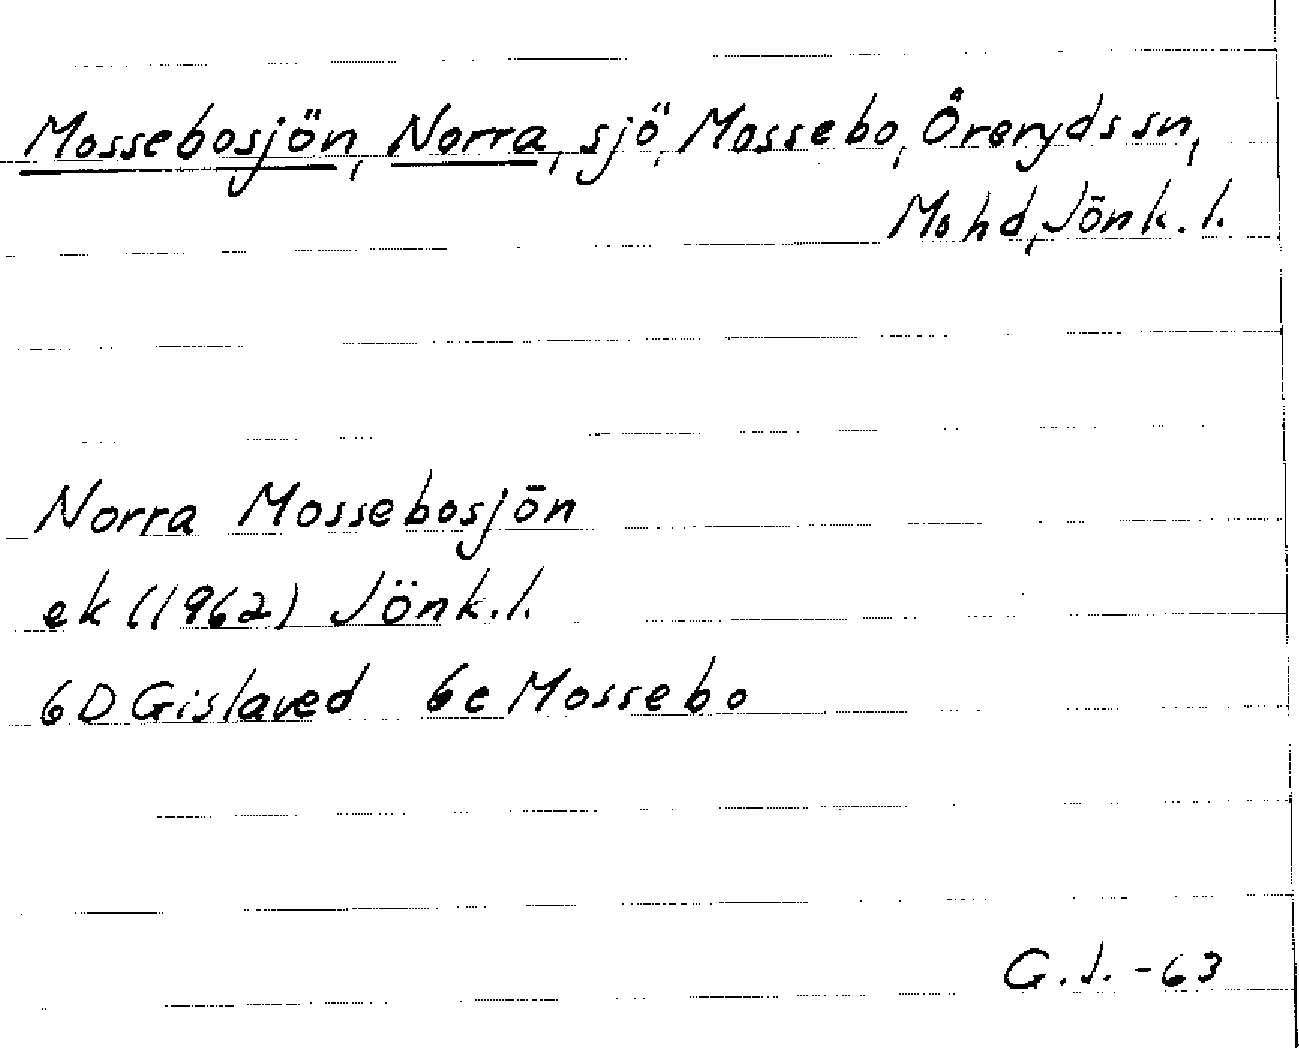 Mossebosjön, Norra, sjö, Mossebo, Öreryds sn,
Mo hd, Jönk. l.
Norra Mossebosjön
ek (1962) Jönk. l.
6D Gislaved 6c Mossebo
G. J. -63